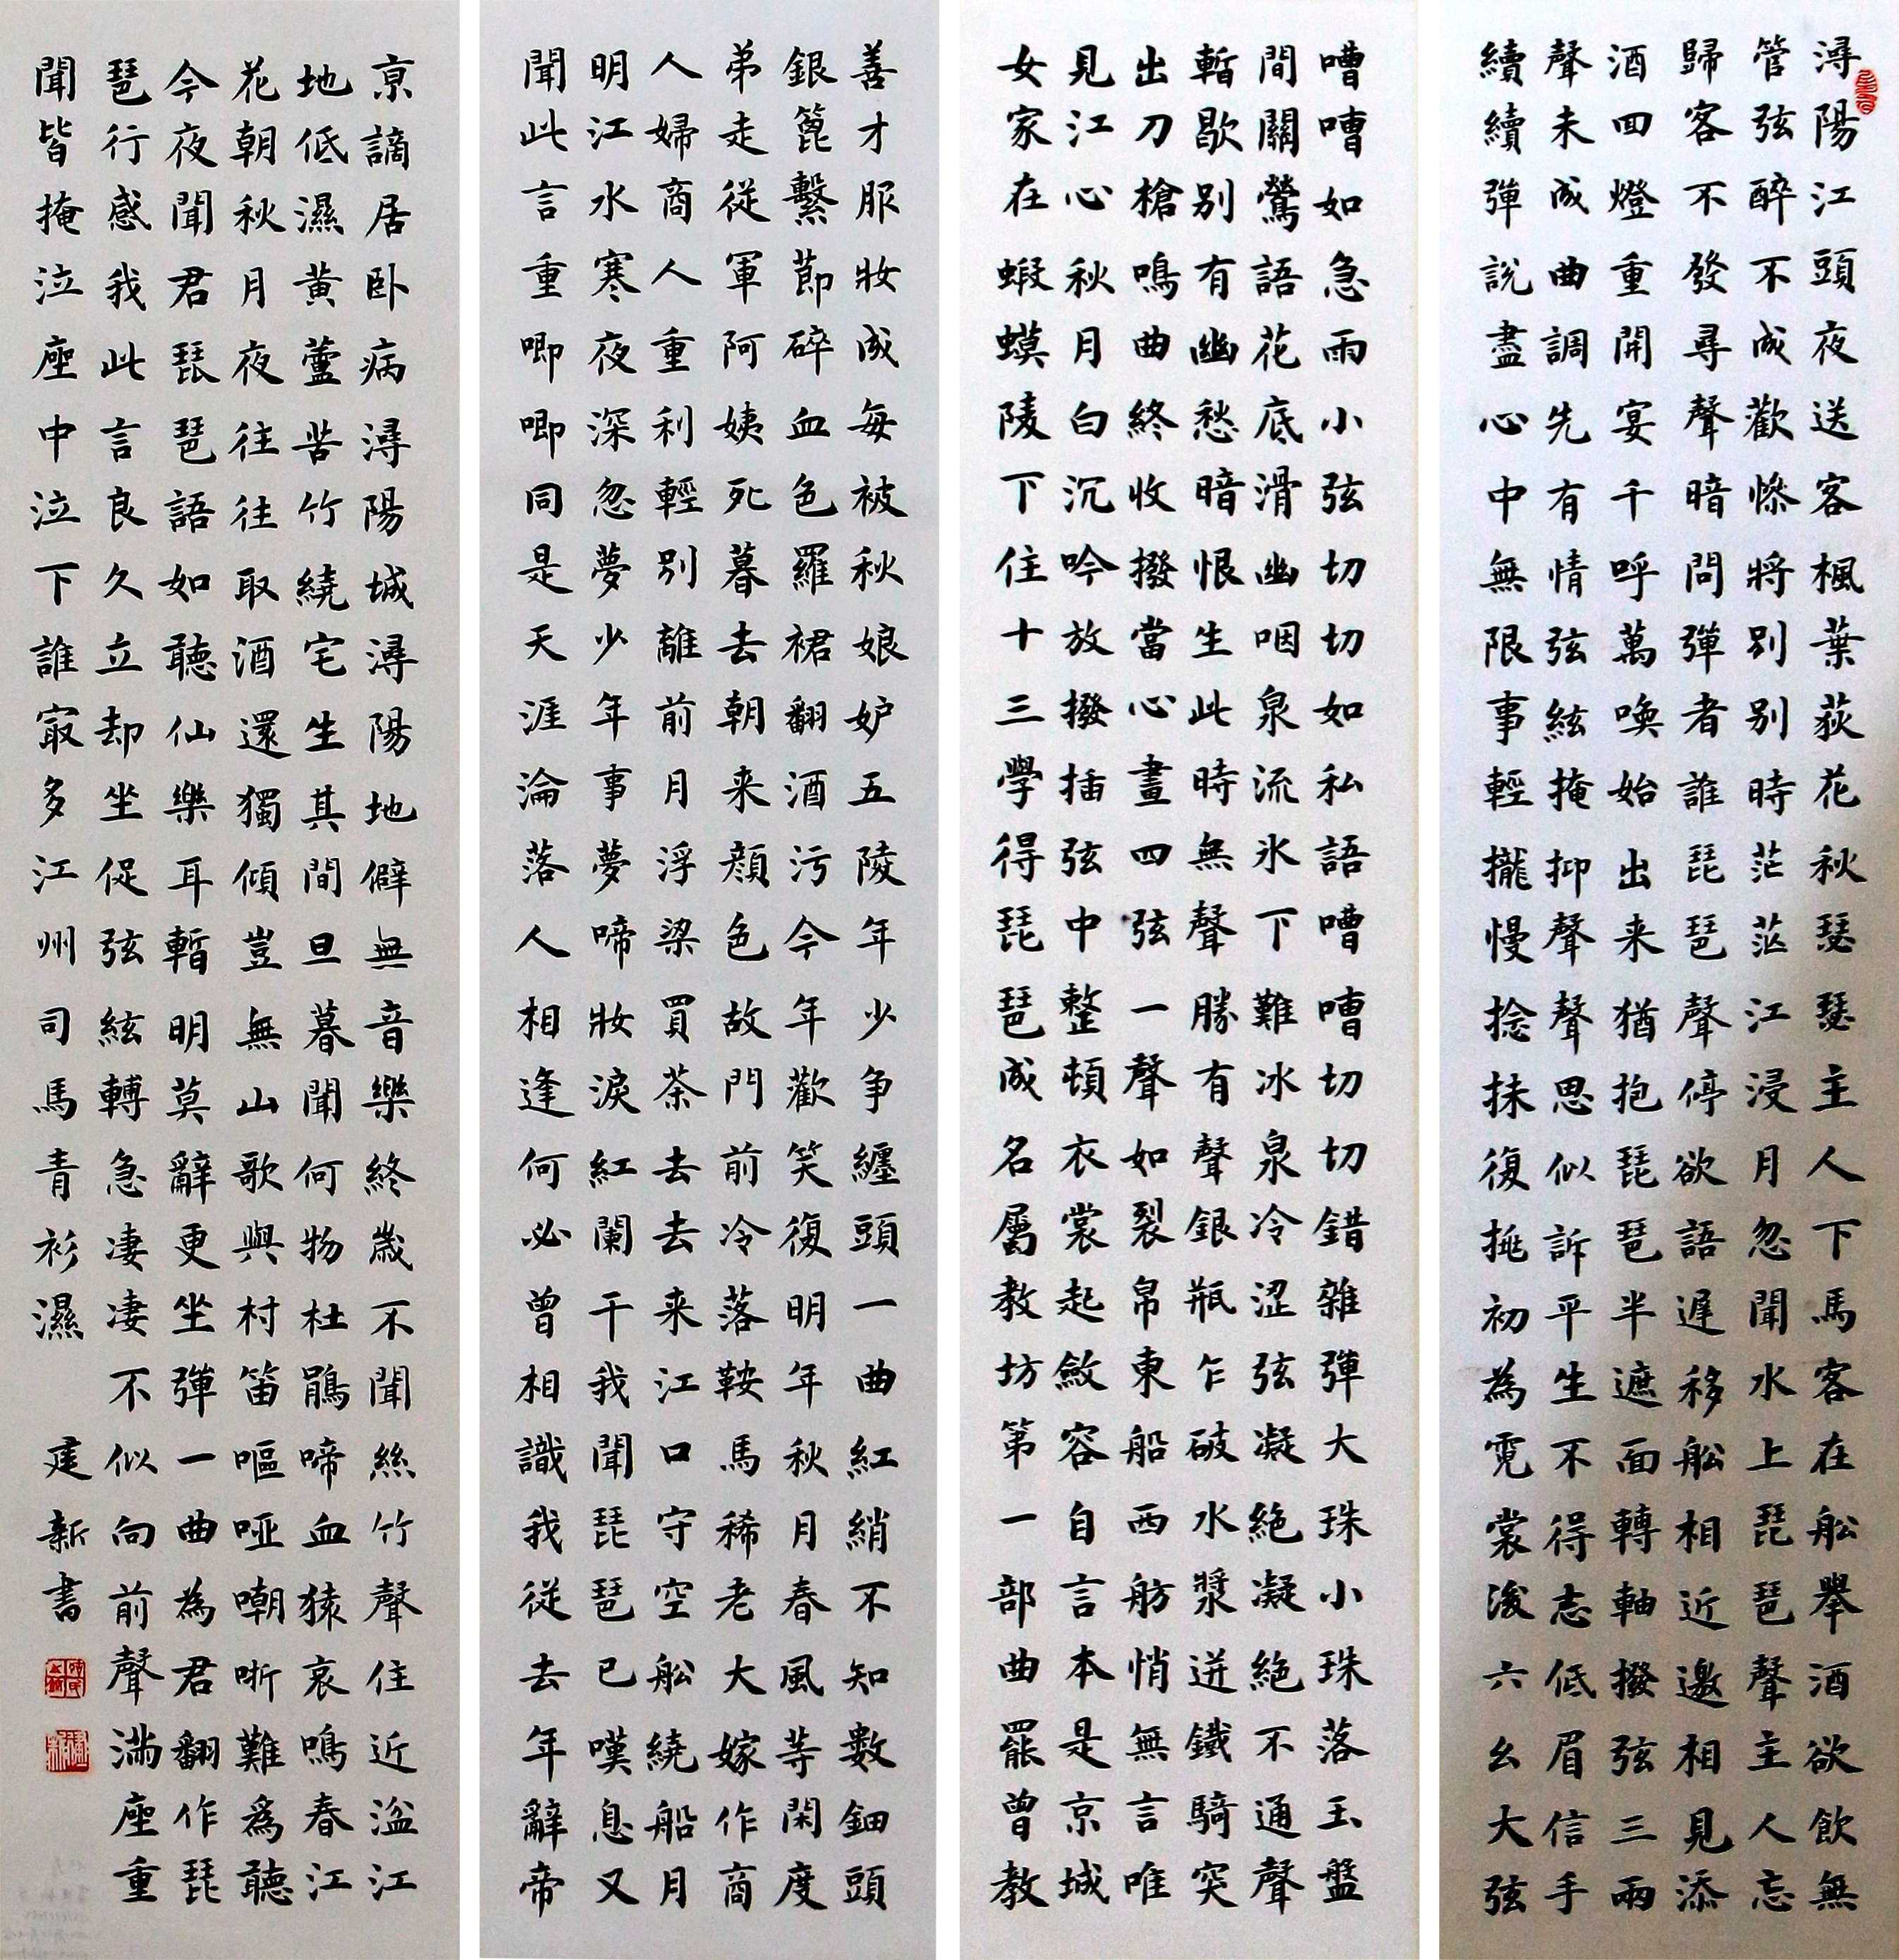 潯陽江頭夜送客楓葉荻花秋瑟瑟主人下馬客在舩舉酒欲飲無
管弦醉不成歡慘將別別時茫茫江浸月忽聞水上琵琶聲主人忘
歸客不發尋聲暗問彈者誰琵琶聲停欲語遲移舩相近邀相見添
酒回燈重開宴千呼萬喚始出来猶抱琵琶半遮面轉軸撥弦三兩
聲未成曲調先有情弦絃掩抑聲聲思似訴平生不得志低眉信手
續續彈說盡心中無限事輕攏慢捻抹復挑初為霓裳後六幺大弦
嘈嘈如急雨小弦切切如私語嘈嘈切切錯雜彈大珠小珠落玉盤
間關鶯語花底滑幽咽泉流氷下難冰泉冷涩弦凝絕凝絕不通聲
暫歇別有幽愁暗恨生此時無聲勝有聲銀瓶乍破水漿迸鐵騎突
出刀槍鳴曲終收撥當心畫四弦一聲如裂帛東船西舫悄無言唯
見江心秋月白沉吟放撥插弦中整頓衣裳起斂容自言本是京城
女家在蝦蟆陵下住十三學得琵琶成名屬教坊第一部曲罷曾教
善才服妝成每被秋娘妒五陵年少争纏頭一曲紅綃不知數鈿頭
銀篦繫節碎血色羅裙翻酒污今年歡笑復明年秋月春風等閑度
弟走從軍阿姨死暮去朝来顏色故門前冷落鞍馬稀老大嫁作商
人婦商人重利輕別離前月浮梁買茶去去来江口守空舩繞船月
明江水寒夜深忽夢少年事夢啼妝淚紅闌干我聞琵琶已嘆息又
聞此言重唧唧同是天涯淪落人相逢何必曾相識我從去年辭帝
京謫居卧病潯陽城潯陽地僻無音樂終歲不聞絲竹聲住近湓江
地低濕黃蘆苦竹繞宅生其間旦暮聞何物杜鵑啼血猿哀鳴春江
花朝秋月夜往往取酒還獨傾豈無山歌與村笛嘔啞嘲哳難為聽
今夜聞君琵琶語如聽仙樂耳暫明莫辭更坐彈一曲為君翻作琵
琶行感我此言良久立却坐促弦絃轉急凄凄不似向前聲滿座重
聞皆掩泣座中泣下誰最多江州司馬青衫濕 建新書